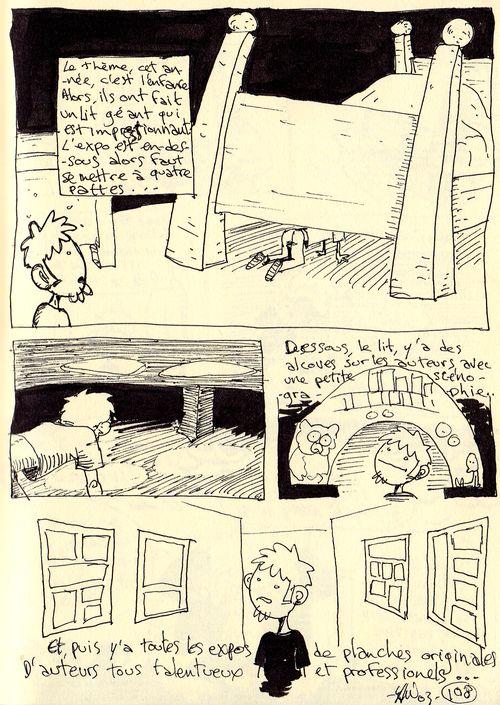 Le thème, cet an-
-née, c'est l'enfance
Alors, ils ont fait
un lit géant qui
est impressionnant.
L'expo est en-des-
-sous alors faut
se mettre à quatre
pattes...
Dessous, le lit, y'a des
alcoves sur les auteurs, avec
une petite scéno-
-gra- -phie..
Et, puis y'a toutes les expos de planches originales
D'auteurs tous talentueux et professionels...
03 108